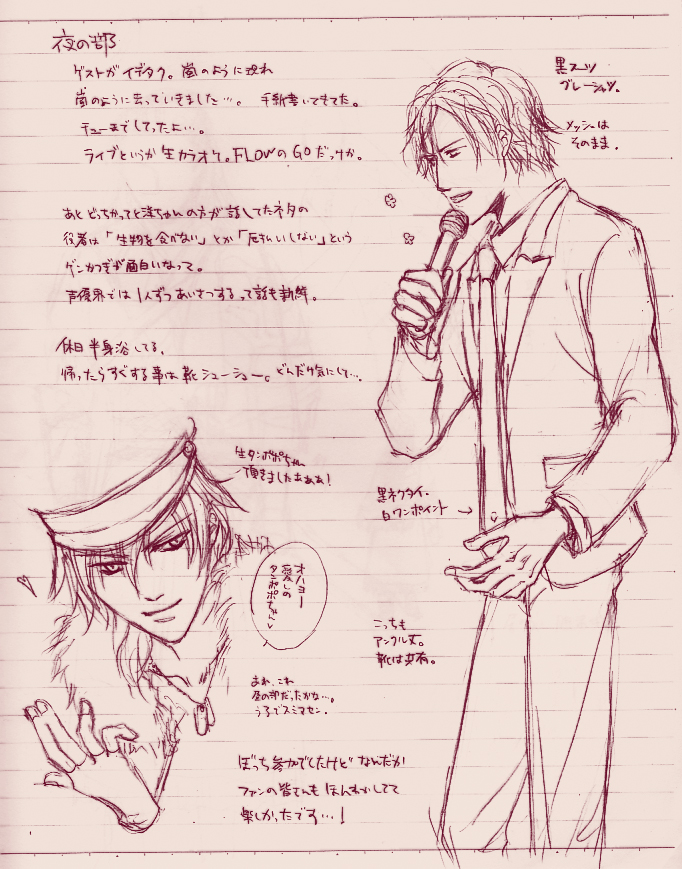 夜の部
ゲストがイデタク。嵐のように現れ
嵐のように去っていきました…。 手新書いてきてた。
チューまでしてったよ…。
ライブというか生カラオケ。FLOWのGOだっけか。
あとどっちかってと淳ちゃんの方が話してたネタの
役者は「生物を食べない」とか「仮払いしない」という
ゲンかつぎが面白いなって。
声優界では1人ずつあいさつするって話も新鮮。
休日半身浴してる、
帰ったらすぐする事は靴シューシュー。どんだけ気にして…。
黒スーツ
グレーシャツ。
メッシュは
そのまま。
生タンポポちゃん
頂きましたあああ!
オハヨー
愛しの
タンポポちゃん
黒ネクタイ、
白ワンポイント
こっちも
アンクル丈。
靴は共有。
あれ、これ
昼の部だったかな…。
うろでスミマセン。
ぼっち参加でしたけど なんだか
ファンの皆さんも ほんわかしてて
楽しかったです…!